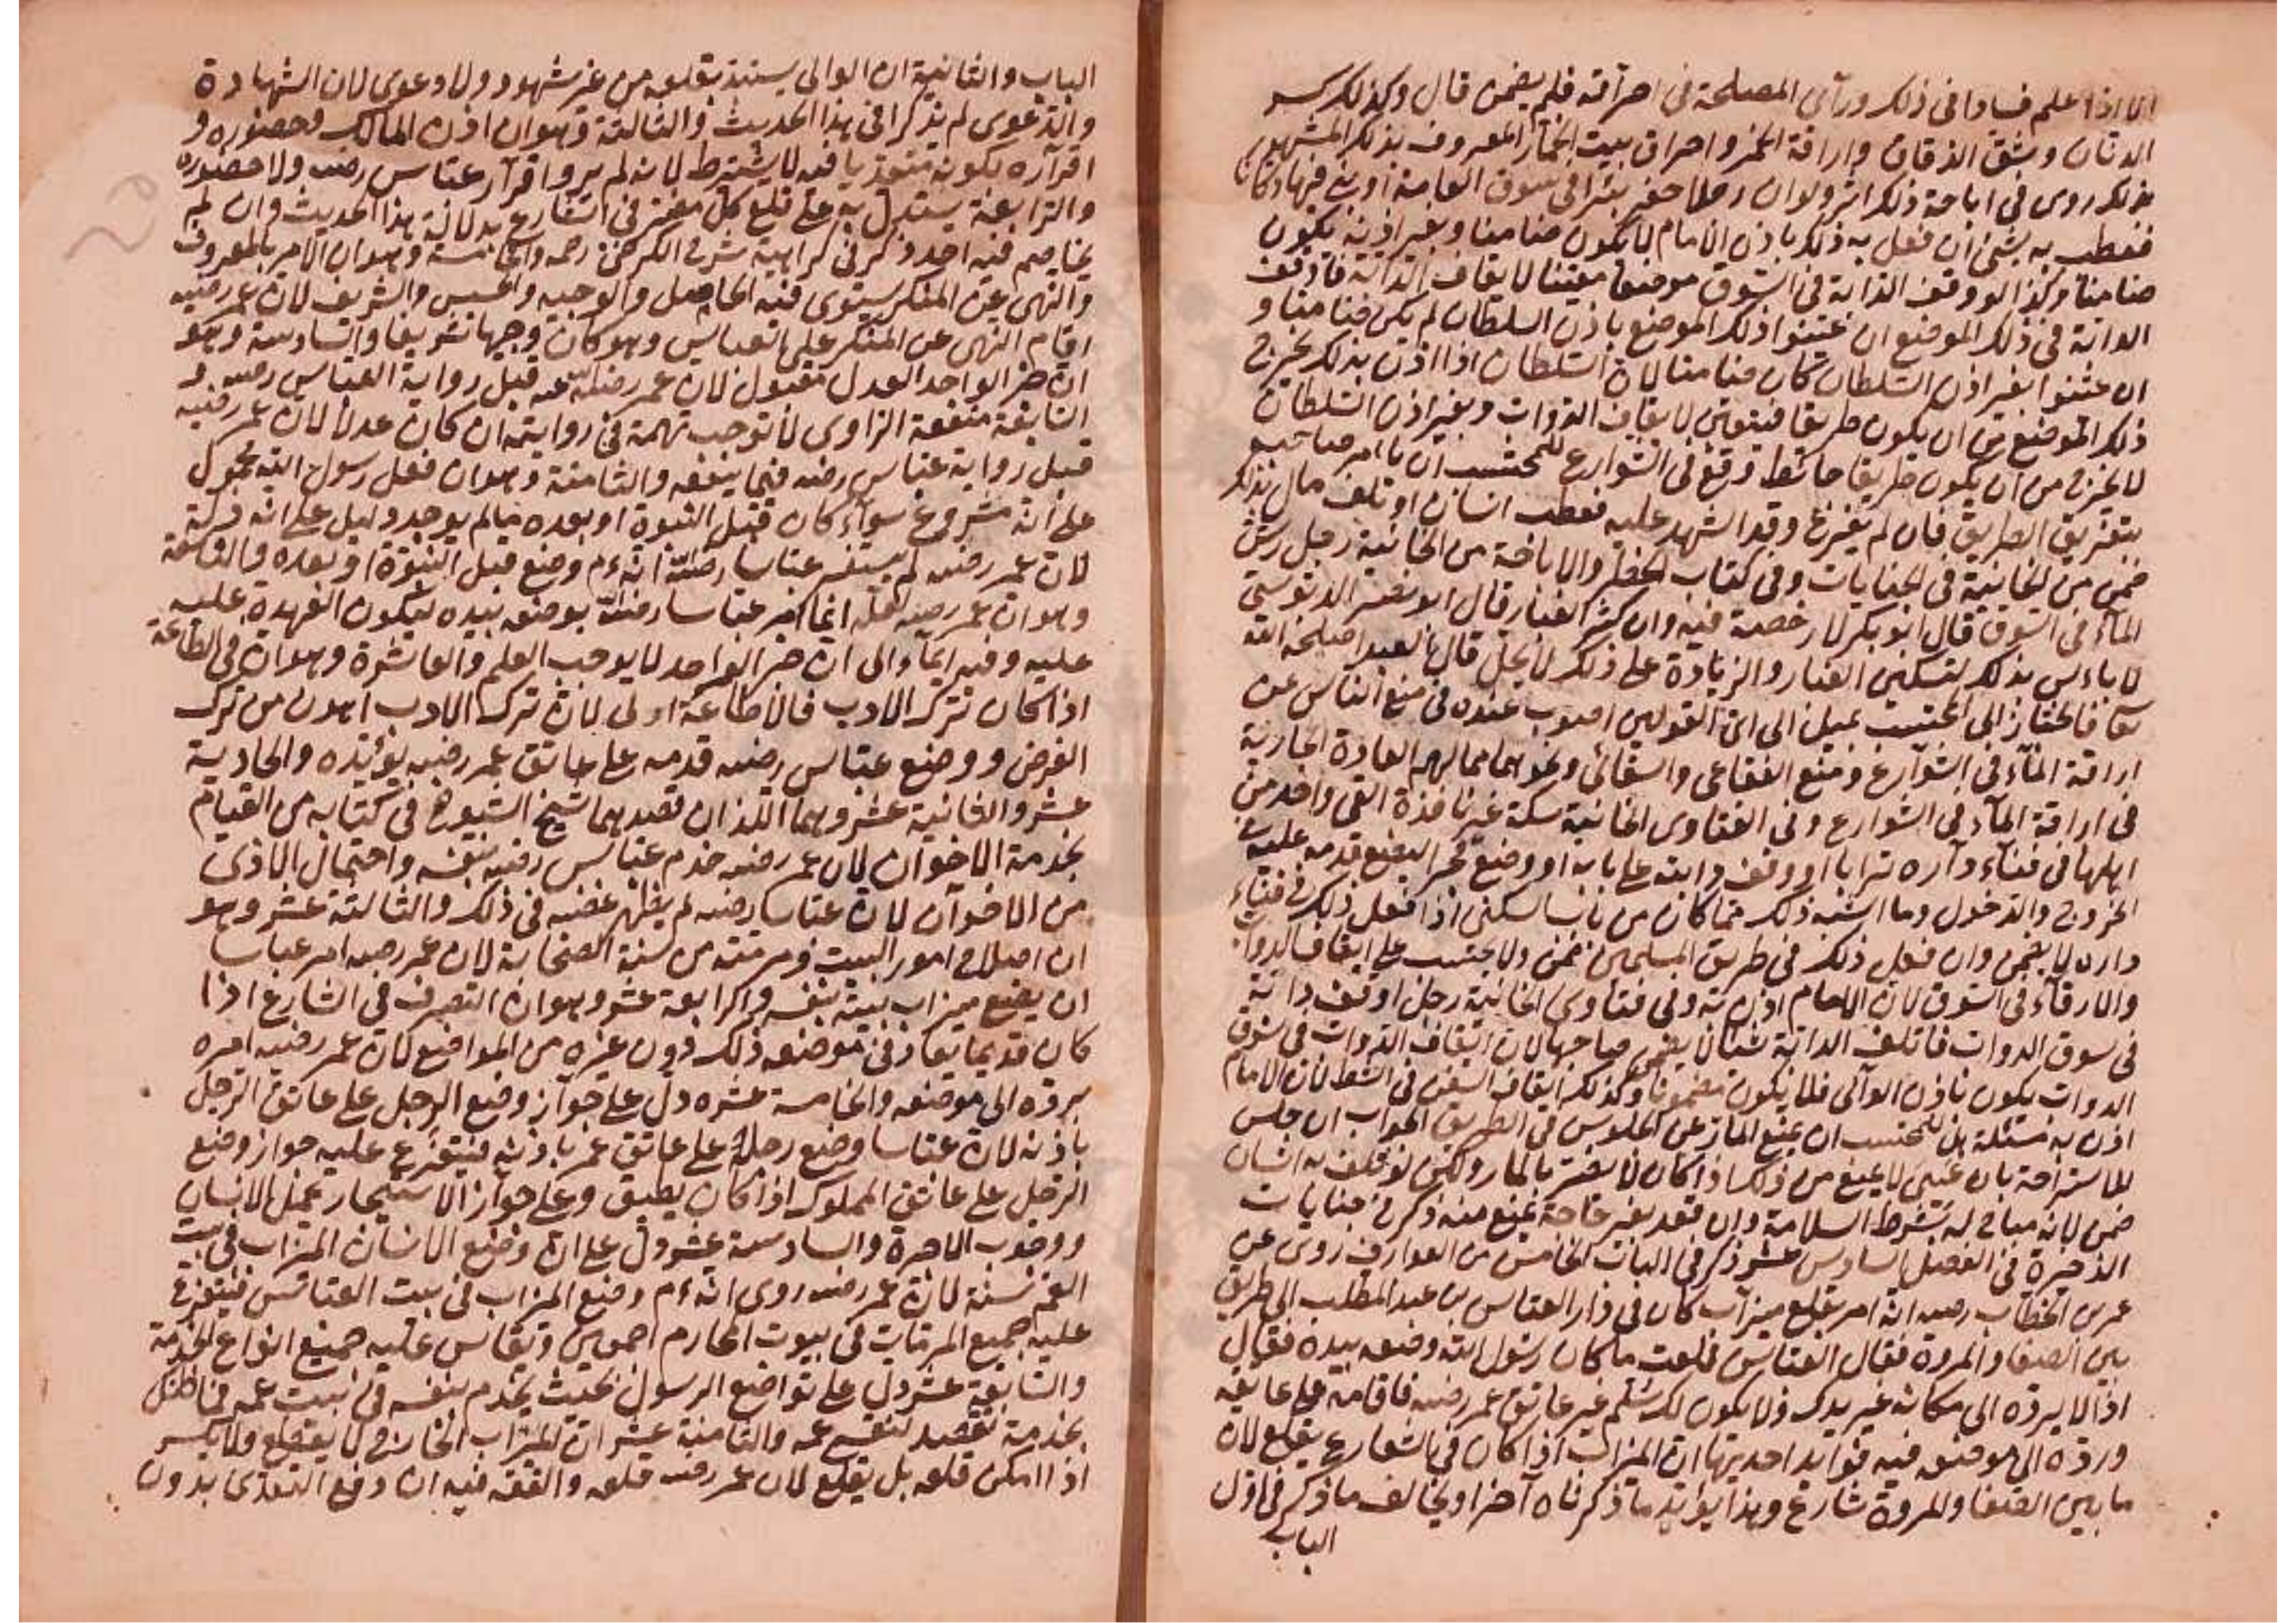 انما اذا علم فسادا في ذلك ورأى المصلحة في احراقه فلم يضمن قال وكذلك كسر
الدنان وشق الزقاق واراقة الخمر واحراق بيت الخمار المعروف بذلك المشهور
بذلك روى في اباحة ذلك اثر ولو ان رجلا حفر بئرا في سوق العامة او بنى فيها دكانا
فعطب به شئ ان فعل به ذلك باذن الامام لا يكون ضامنا وبغير اذنه يكون
ضامنا وكذا لو وقف الدابة في السوق موضعا معينا لايقاف الدابة فاوقف
الدابة في ذلك الموضع ان عينوا ذلك الموضع باذن السلطان لم يكن ضامنا و
ان عينوا بغير اذن السلطان كان ضامنا لان السلطان اذا اذن بذلك يخرج
ذلك الموضع من ان يكون طريقا فيتعين لايقاف الدواب وبغير اذن السلطان
لا يخرج من ان يكون طريقا حائط وقع في الشوارع للمحتسب ان يأمر صاحبه
بتفريق الطريق فان لم يفرغ وقد اشهد عليه فعطب انسان او تلف مال بذلك
ضمن من الخانية في الجنايات وفي كتاب الحظر والاباحة من الخانية رجل رش
الماء في السوق قال ابو بكر لا رخصة فيه وان كثر الغبار قال ابو نصر الدبوسي
لا بأس بذلك لتسكين الغبار والزيادة على ذلك لا يحل قال العبد اصلحه الله
شأنه فالخيار الى المحتسب يميل الى اى القولين اصوب عنده في منع الناس عن
اراقة الماء في الشوارع ومنع الفقاعى والسقائى ونحوهما مما لهم العادة الجارية
في اراقة الماء في الشوارع وفي الفتاوى الخانية سكة غير نافذة القى واحد من
اهلها في فناء داره ترابا او وقف دابته على بابه او وضع حجرا ليضع قدمه عليه في
الخروج والدخول وما اشبه ذلك مما كان من باب السكنى اذا فعل ذلك في فناء
داره لا يضمن وان فعل ذلك في طريق المسلمين ضمن ولا يحتسب على ايقاف الدواب
والارقاء في السوق لان الامام اذن به وفي فتاوى الخانية رجل اوقف دابة
في سوق الدواب فاتلفت الدابة شيئا لا يضمن صاحبها لان ايقاف الدواب في سوق
الدواب يكون باذن الوالى فلا يكون مضمونا وكذلك ايقاف السفن في الشط لان الامام
اذن به مسئلة هل للمحتسب ان يمنع المار عن الجلوس في الطريق الجواب ان جلس
للاستراحة بان عيى لا يمنع من ذلك اذا كان لا يضر بالمار ولكن لو تلف به انسان
ضمن لانه مباح له بشرط السلامة وان قعد بغير حاجة يمنع منه ذكر في جنايات
الذخيرة في الفصل السادس عشر ذكر في الباب الخامس من العوارف روى عن
عمر بن الخطاب رضه انه امر بقلع ميزاب كان في دار العباس بن عبد المطلب الى طريق
بين الصفا والمروة فقال العباس قلعت ما كان رسول الله وضعه بيده فقال
اذا لا يرده الى مكانه غير يدك ولا يكون لك سلم غير عاتق عمر رضه فاقامه على عاتقه
ورده الى موضعه فيه فوائد احديها ان الميزاب اذا كان في الشارع يقلع لان
ما بين الصفا والمروة شارع وهذا يؤيد ما ذكرناه آخرا ويخالف ما ذكر في اول
الباب
الباب والثانية ان الوالى يستبد بقلعه من غير شهود ولا دعوى لان الشهادة
والدعوى لم يذكرا في هذا الحديث والثالثة وهو ان اذن المالك وحضوره و
اقراره بكونه متعديا فيه لا يشترط لانه لم يرو اقرار عباس رضه ولا حضوره
والرابعة يستدل به على قلع كل مضر في الشارع بدلالة هذا الحديث وان لم
يخاصم فيه احد ذكر في كراهية شرح الكرخى رحمه والخامسة وهو ان الامر بالمعروف
والنهى عن المنكر يستوى فيه الخامل والوجيه والخسيس والشريف لان عمر رضه
اقام النهى عن المنكر على العباس وهو كان وجيها شريفا والسادسة وهو
ان خبر الواحد العدل مقبول لان عمر رضى الله عنه قبل رواية العباس رضه و
السابعة منفعة الراوى لا توجب تهمة في روايته ان كان عدلا لان عمر رضه
قبل رواية عباس رضه فيما ينفعه والثامنة وهو ان فعل رسول الله محمول
على انه مشروع سواء كان قبل النبوة او بعده ما لم يوجد دليل على انه تركه
لان عمر رضه لم يستفسر عباسا رضى الله انه ءم وضع قبل النبوة او بعده والتاسعة
وهو ان عمر رضه لعله انما امر عباسا رضى الله بوضعه بيده ليكون العهدة عليه
عليه وفيه ايماء الى ان خبر الواحد لا يوجب العلم والعاشرة وهو ان في الطاعة
اذا كان ترك الادب فالاطاعة اولى لان ترك الادب اهون من ترك
الفرض ووضع عباس رضه قدمه على عاتق عمر رضه يؤيده والحادية
عشر والثانية عشر وهما اللذان قصدهما شيخ الشيوخ في كتابه من القيام
بخدمة الاخوان لان عمر رضه خدم عباس رضه بنفسه واحتمال الاذى
من الاخوان لان عباسا رضه لم يظهر غضبه في ذلك والثالثة عشر وهو
ان اصلاح امور البيت ومرمته من سنة الصحابة لان عمر رضه امر عباسا
ان يضع ميزاب بيته بنفسه والرابعة عشر وهو ان التصرف في الشارع اذا
كان قديما يعاد في موضعه ذلك دون غيره من المواضع لان عمر رضه امره
برده الى موضعه والخامسة عشره دل على جواز وضع الرجل على عاتق الرجل
باذنه لان عباسا وضع رجله على عاتق عمر باذنه فيتفرع عليه جواز وضع
الرجل على عاتق المملوك اذا كان يطيق وعلى جواز الاستيجار بحمل الانسان
ووجوب الاجرة والسادسة عشر دل على ان وضع الانسان الميزاب في بيت
العم سنة لان عمر رضه روى انه ءم وضع الميزاب في بيت العباس فيتفرع
عليه جميع المرمات في بيوت المحارم اجمعين وتقاس عليه جميع انواع الخدمة
والسابعة عشر دل على تواضع الرسول بحيث يخدم بنفسه في بيت عمه فما ظنك
بخدمة نفسه لنفسه والثامنة عشر ان الميزاب الخارج لا يقطع ولا يكسر
اذا امكن قلعه بل يقلع لان عمر رضه قلعه والفقه فيه ان دفع التعدى بدون